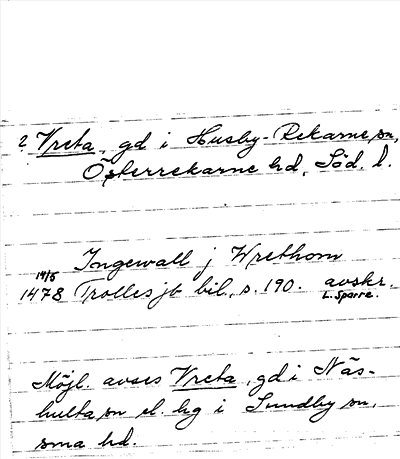 ? Vreta, gd i Husby-Rekarne sn,
Österrekarne hd, Söd. l.
Ingewall j Wrethom
19/5
1478 Trolles jb bil., s. 190. avskr.
L. Sparre.
Möjl. avses Vreta, gd i Näs-
hulta sn el. hg i Sundby sn,
sma hd.